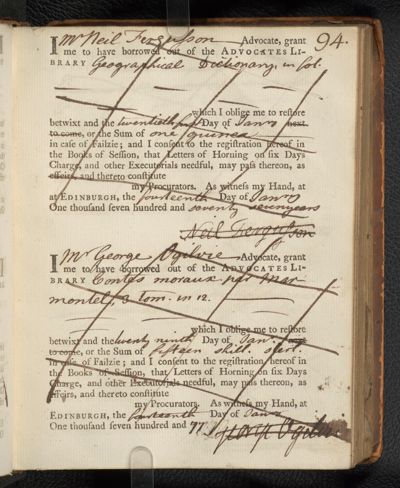 94.
I Mr Neil Fergusson Advocate, grant
me to have borrowed out of the ADVOCATES LI-
BRARY Geographical Dictionary, in fol.
which I oblige me to reſtore
betwixt and the twentieth Day of Janry next
to come, or the Sum of one guinea
in caſe of Failzie; and I conſent to the regiſtration hereof in
the Books of Seſſion, that Letters of Horning on ſix Days
Charge, and other Executorials needful, may paſs thereon, as
effeirs, and thereto conſtitute
my Procurators. As witneſs my Hand, at
at EDINBURGH, the fourteenth Day of Janry
One thouſand ſeven hundred and seventy seven years
Neil Fergusson
I Mr George Ogilvie Advocate, grant
me to have borrowed out of the ADVOCATES LI-
BRARY Contes moraux par Mar-
montel, 3 tom. in 12.
which I oblige me to reſtore
betwixt and the twenty ninth Day of Janry next
to come, or the Sum of fifteen shill. sterl.
in caſe of Failzie; and I conſent to the regiſtration hereof in
the Books of Seſſion, that Letters of Horning on ſix Days
Charge, and other Executorials needful, may paſs thereon, as
effeirs, and thereto conſtitute
my Procurators. As witneſs my Hand, at
EDINBURGH, the fourteenth Day of Janry
One thouſand ſeven hundred and 77.
George Ogilvie.